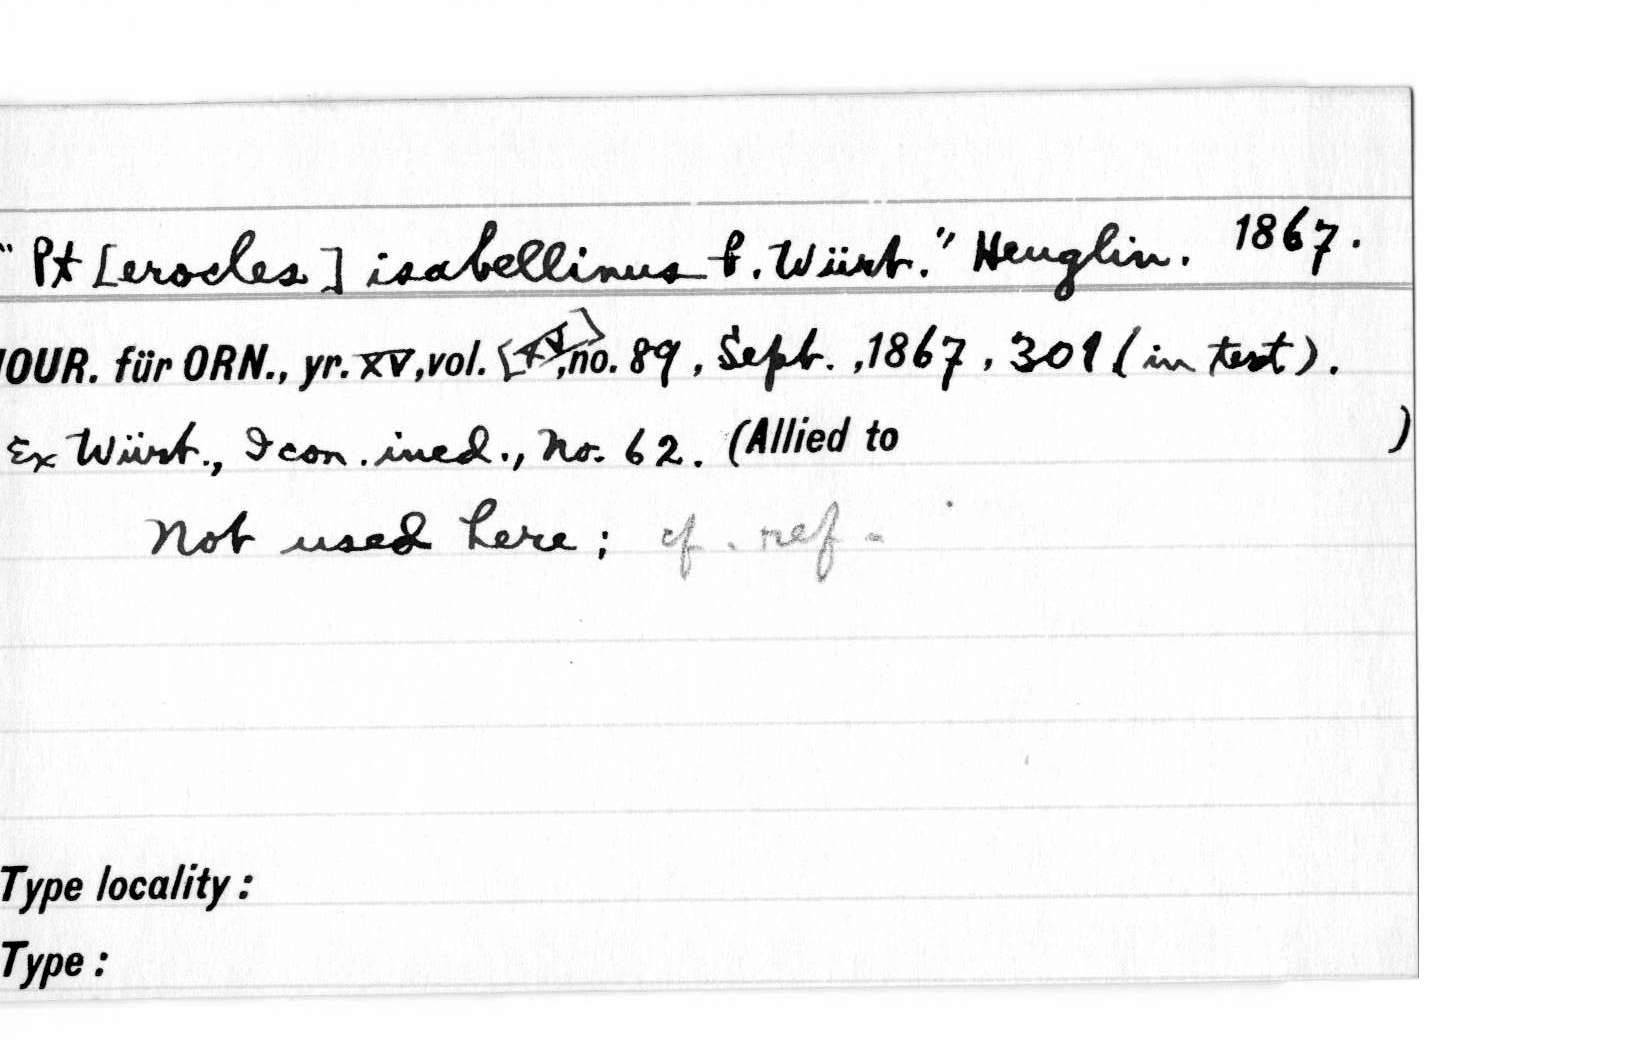 "Pt[erocles] isabellinus P. Würt." Heuglin. 1867.
JOUR. für ORN., yr. XV, vol. [XV], no. 89, Sept., 1867, 301 (in text).
Ex Würt., Icon. ined., No. 62. (Allied to )
Not used here; cf. ref.
Type locality:
Type: